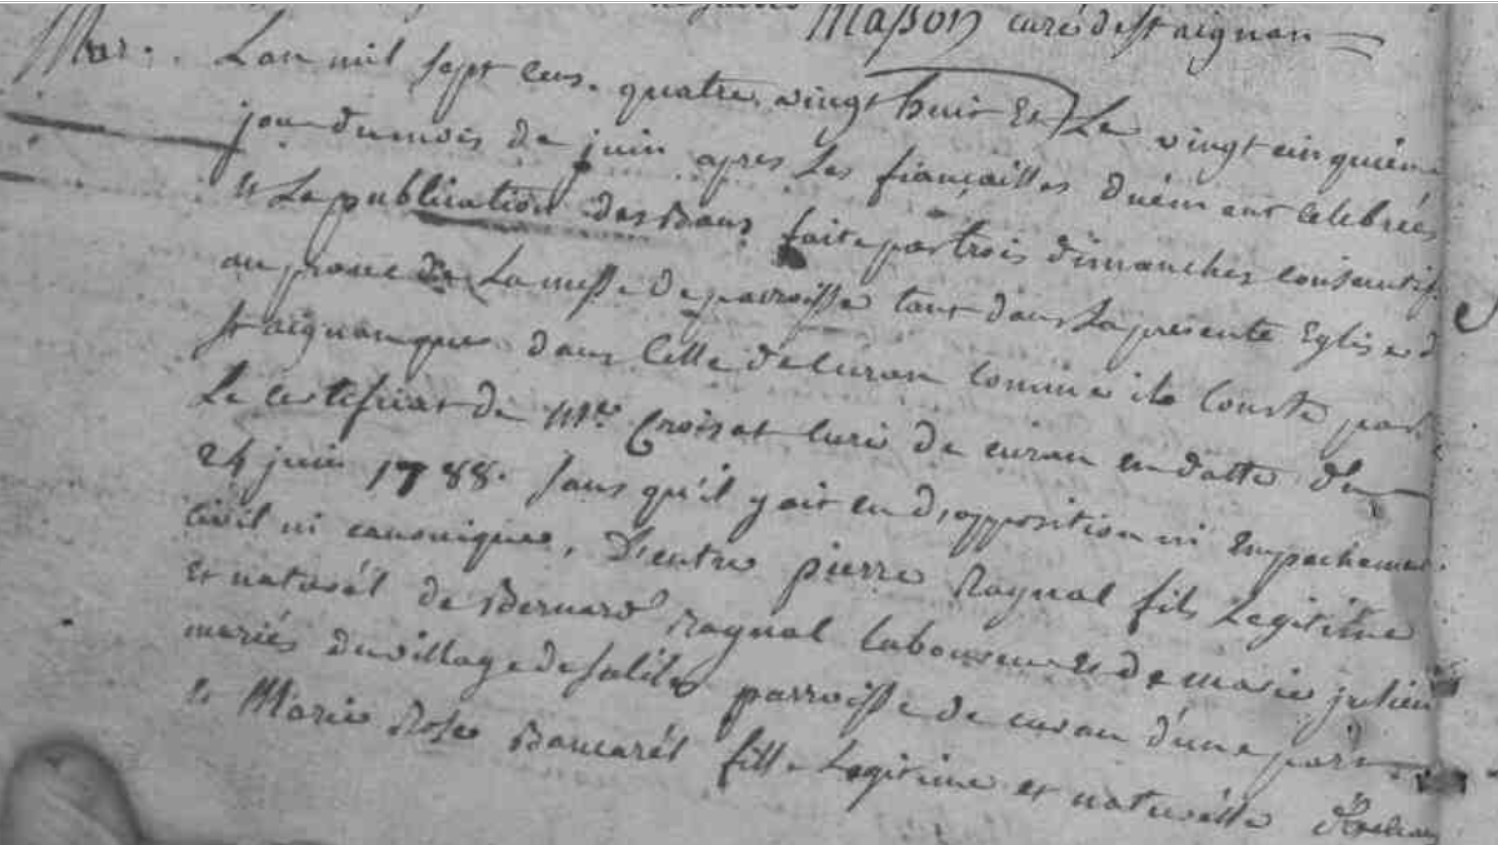 Masson curé de st aignan
Mar. L'an mil sept cens quatre vingt huit et le vingt cinquieme
jour du mois de juin apres les fiançailles duëment celebrées
et la publication des Bans faite par trois dimanches consecutifs
au prone de la messe de parroisse tant dans la presente Eglise d
st aignan que dans celle de curan comme il conste par
le certificat de Mre Croisat curé de curan en datte du
24 juin 1788. sans qu'il y ait eu d'opposition ni Empechement
civil ni canonique, D'entre pierre Raynal fils Legitime
et naturél de Bernard Raynal laboureur et de marie julien
mariés du village de saliles parroisse de curan d'une part
et Marie Rose Bancarél fille Legitime et naturélle